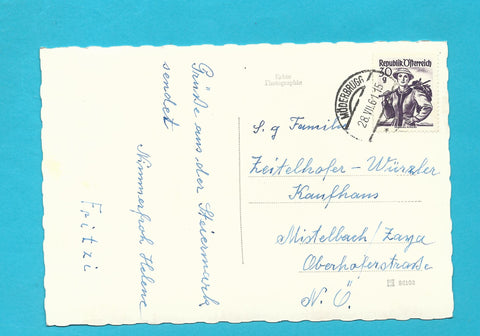 Grüße aus der Steiermark
sendet
Nimmerfroh Helene
Fritzi
Echte
Photographie
Republik Österreich
30
g
MÖDERBRUGG
28.VII.61-15
S. g Familie
Zeitelhofer-Würzler
Kaufhaus
Mistelbach/Zaya
Oberhoferstraße
N. Ö.